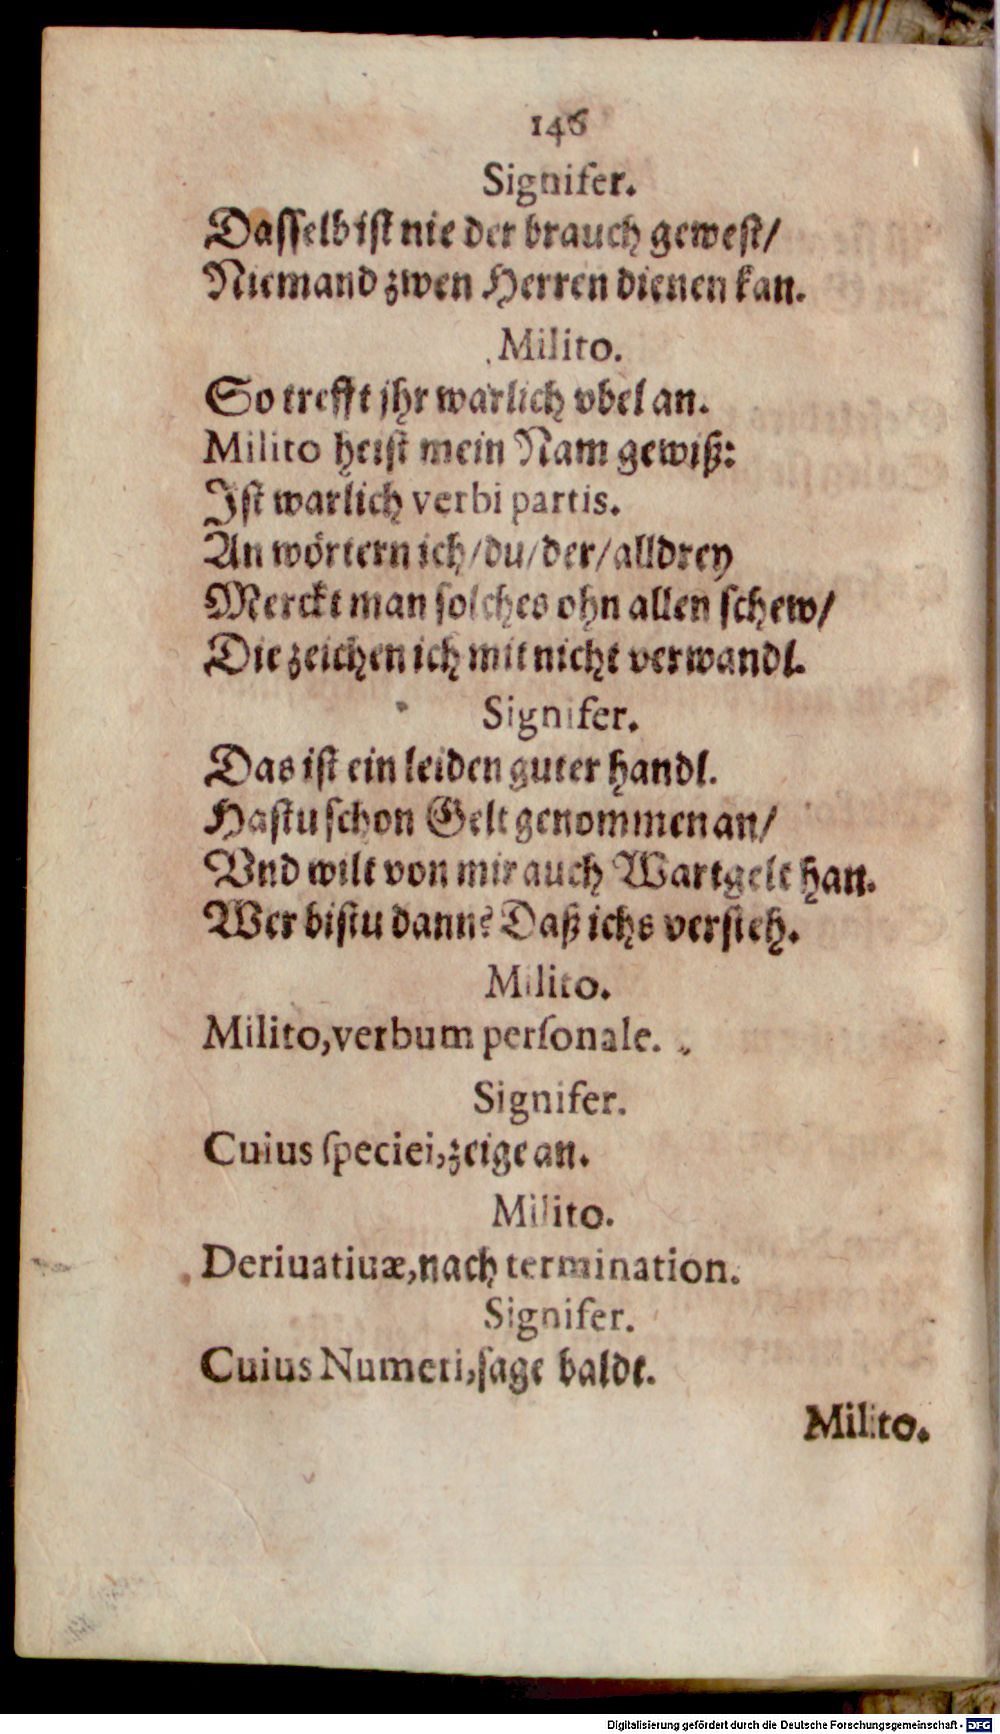 146
Signifer.
Dasselb ist nie der brauch gewest/
Niemand zwen Herren dienen kan.
Milito.
So trefft jhr warlich vbel an.
Milito heist mein Nam gewiß:
Ist warlich verbi partis.
An wörtern ich/du/der/alldrey
Merckt man solches ohn allen schew/
Die zeichen ich mit nicht verwandl.
Signifer.
Das ist ein leiden guter handl.
Hastu schon Gelt genommen an/
Vnd wilt von mir auch Wartgelt han.
Wer bistu dann? Daß ichs versteh.
Milito.
Milito, verbum perſonale.
Signifer.
Cuius ſpeciei, zeige an.
Milito.
Deriuatiuæ, nach termination.
Signifer.
Cuius Numeri, sage baldt.
Milito.
Digitalisierung gefördert durch die Deutsche Forschungsgemeinschaft - DFG